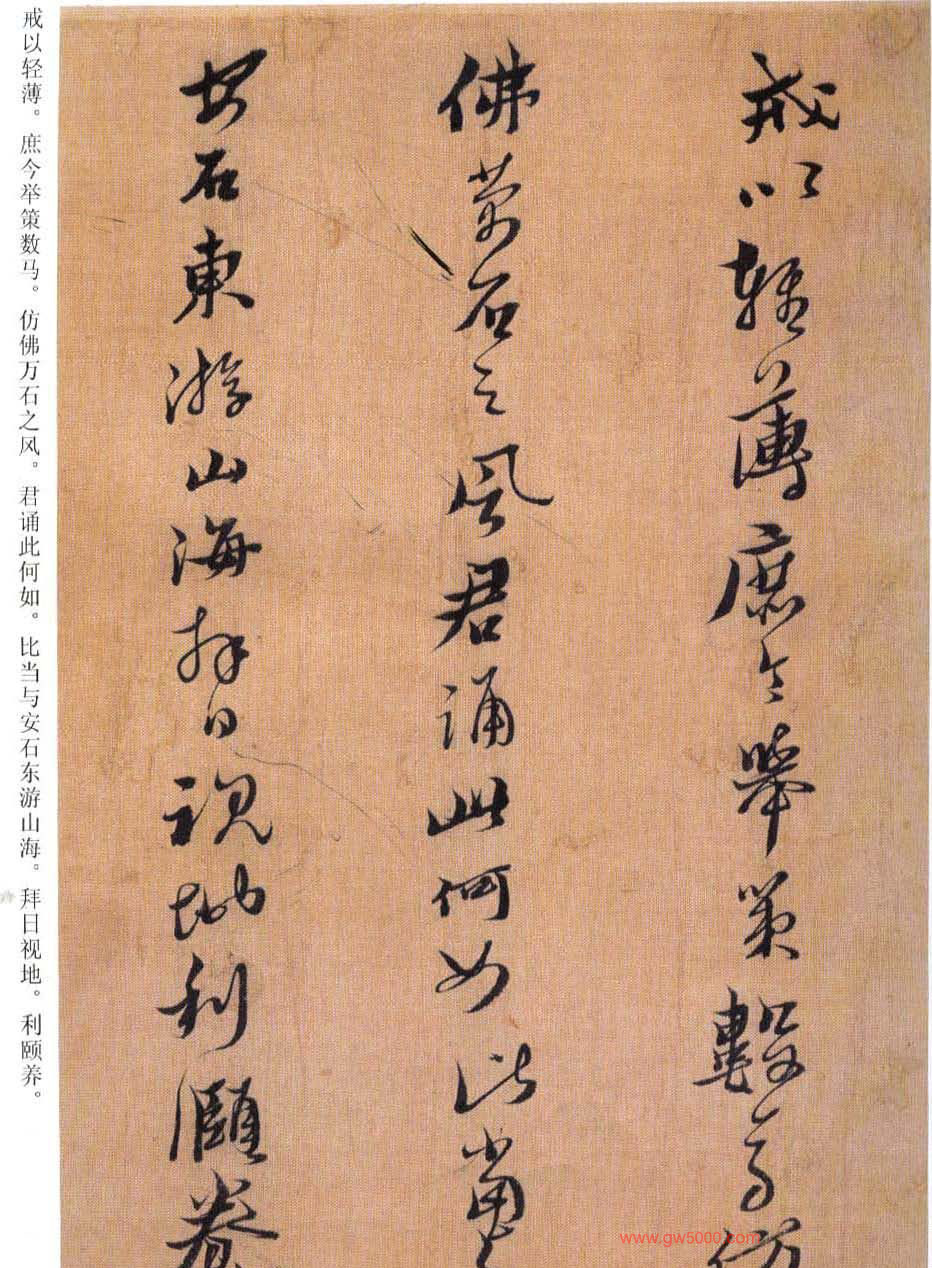 戒以輕薄庶令舉策數馬仿
佛萬石之風君誦此何如比當與
安石東游山海拜日視地利頤養
戒以轻薄。庶今举策数马。仿佛万石之风。君诵此何如。比当与安石东游山海。拜日视地。利颐养。
www.gw5000.com